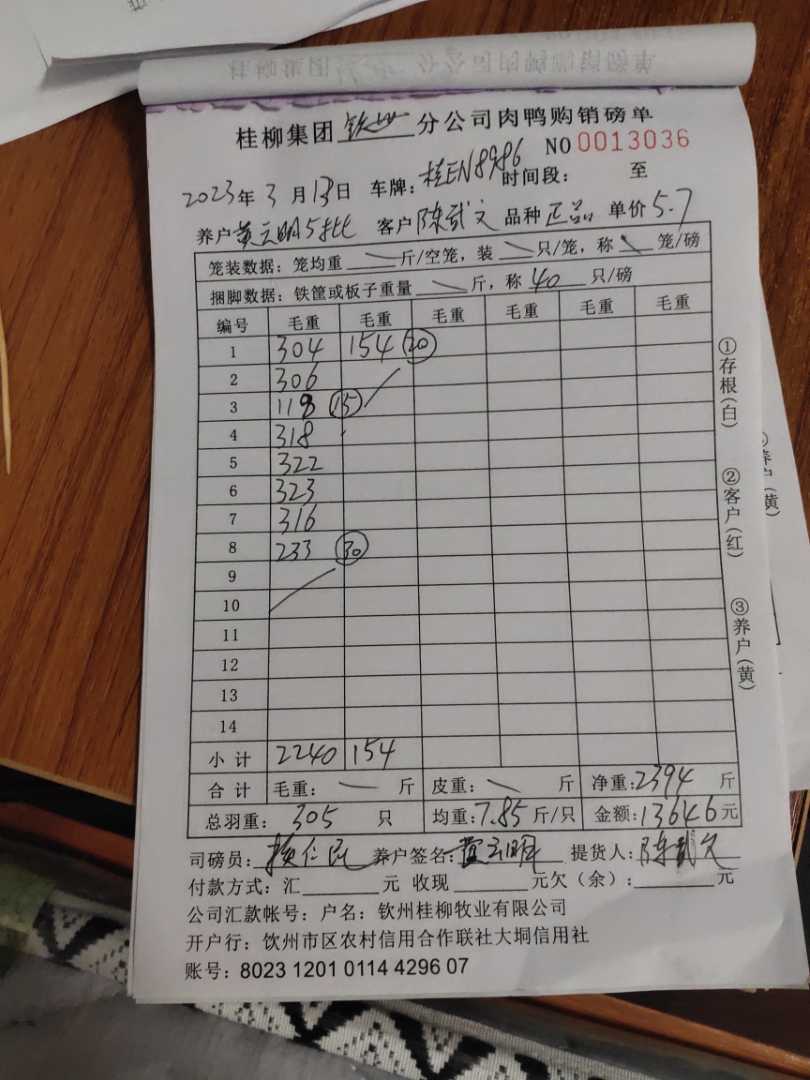 桂柳集团 钦州 分公司肉鸭购销磅单
NO 0013036
2023年 3 月 13日 车牌：桂EN8986 时间段： 至
养户 黄云明5批 客户 陈武文 品种 正品 单价 5.7
笼装数据：笼均重 斤/空笼，装 只/笼，称 笼/磅
捆脚数据：铁筐或板子重量 斤，称 40 只/磅
编号 毛重 毛重 毛重 毛重 毛重 毛重
1 304 154 20
2 306
3 118 15
4 318
5 322
6 323
7 316
8 233 30
9
10
11
12
13
14
小 计 2240 154
合 计 毛重： 斤 皮重： 斤 净重：2394 斤
总羽重： 305 只 均重：7.85 斤/只 金额：13646 元
司磅员： 养户签名：黄云明 提货人：陈武文
付款方式：汇 元 收现 元欠（余）： 元
公司汇款帐号：户名：钦州桂柳牧业有限公司
开户行：饮州市区农村信用合作联社大垌信用社
账号：8023 1201 0114 4296 07
①存根（白）
②客户（红）
③养户（黄）